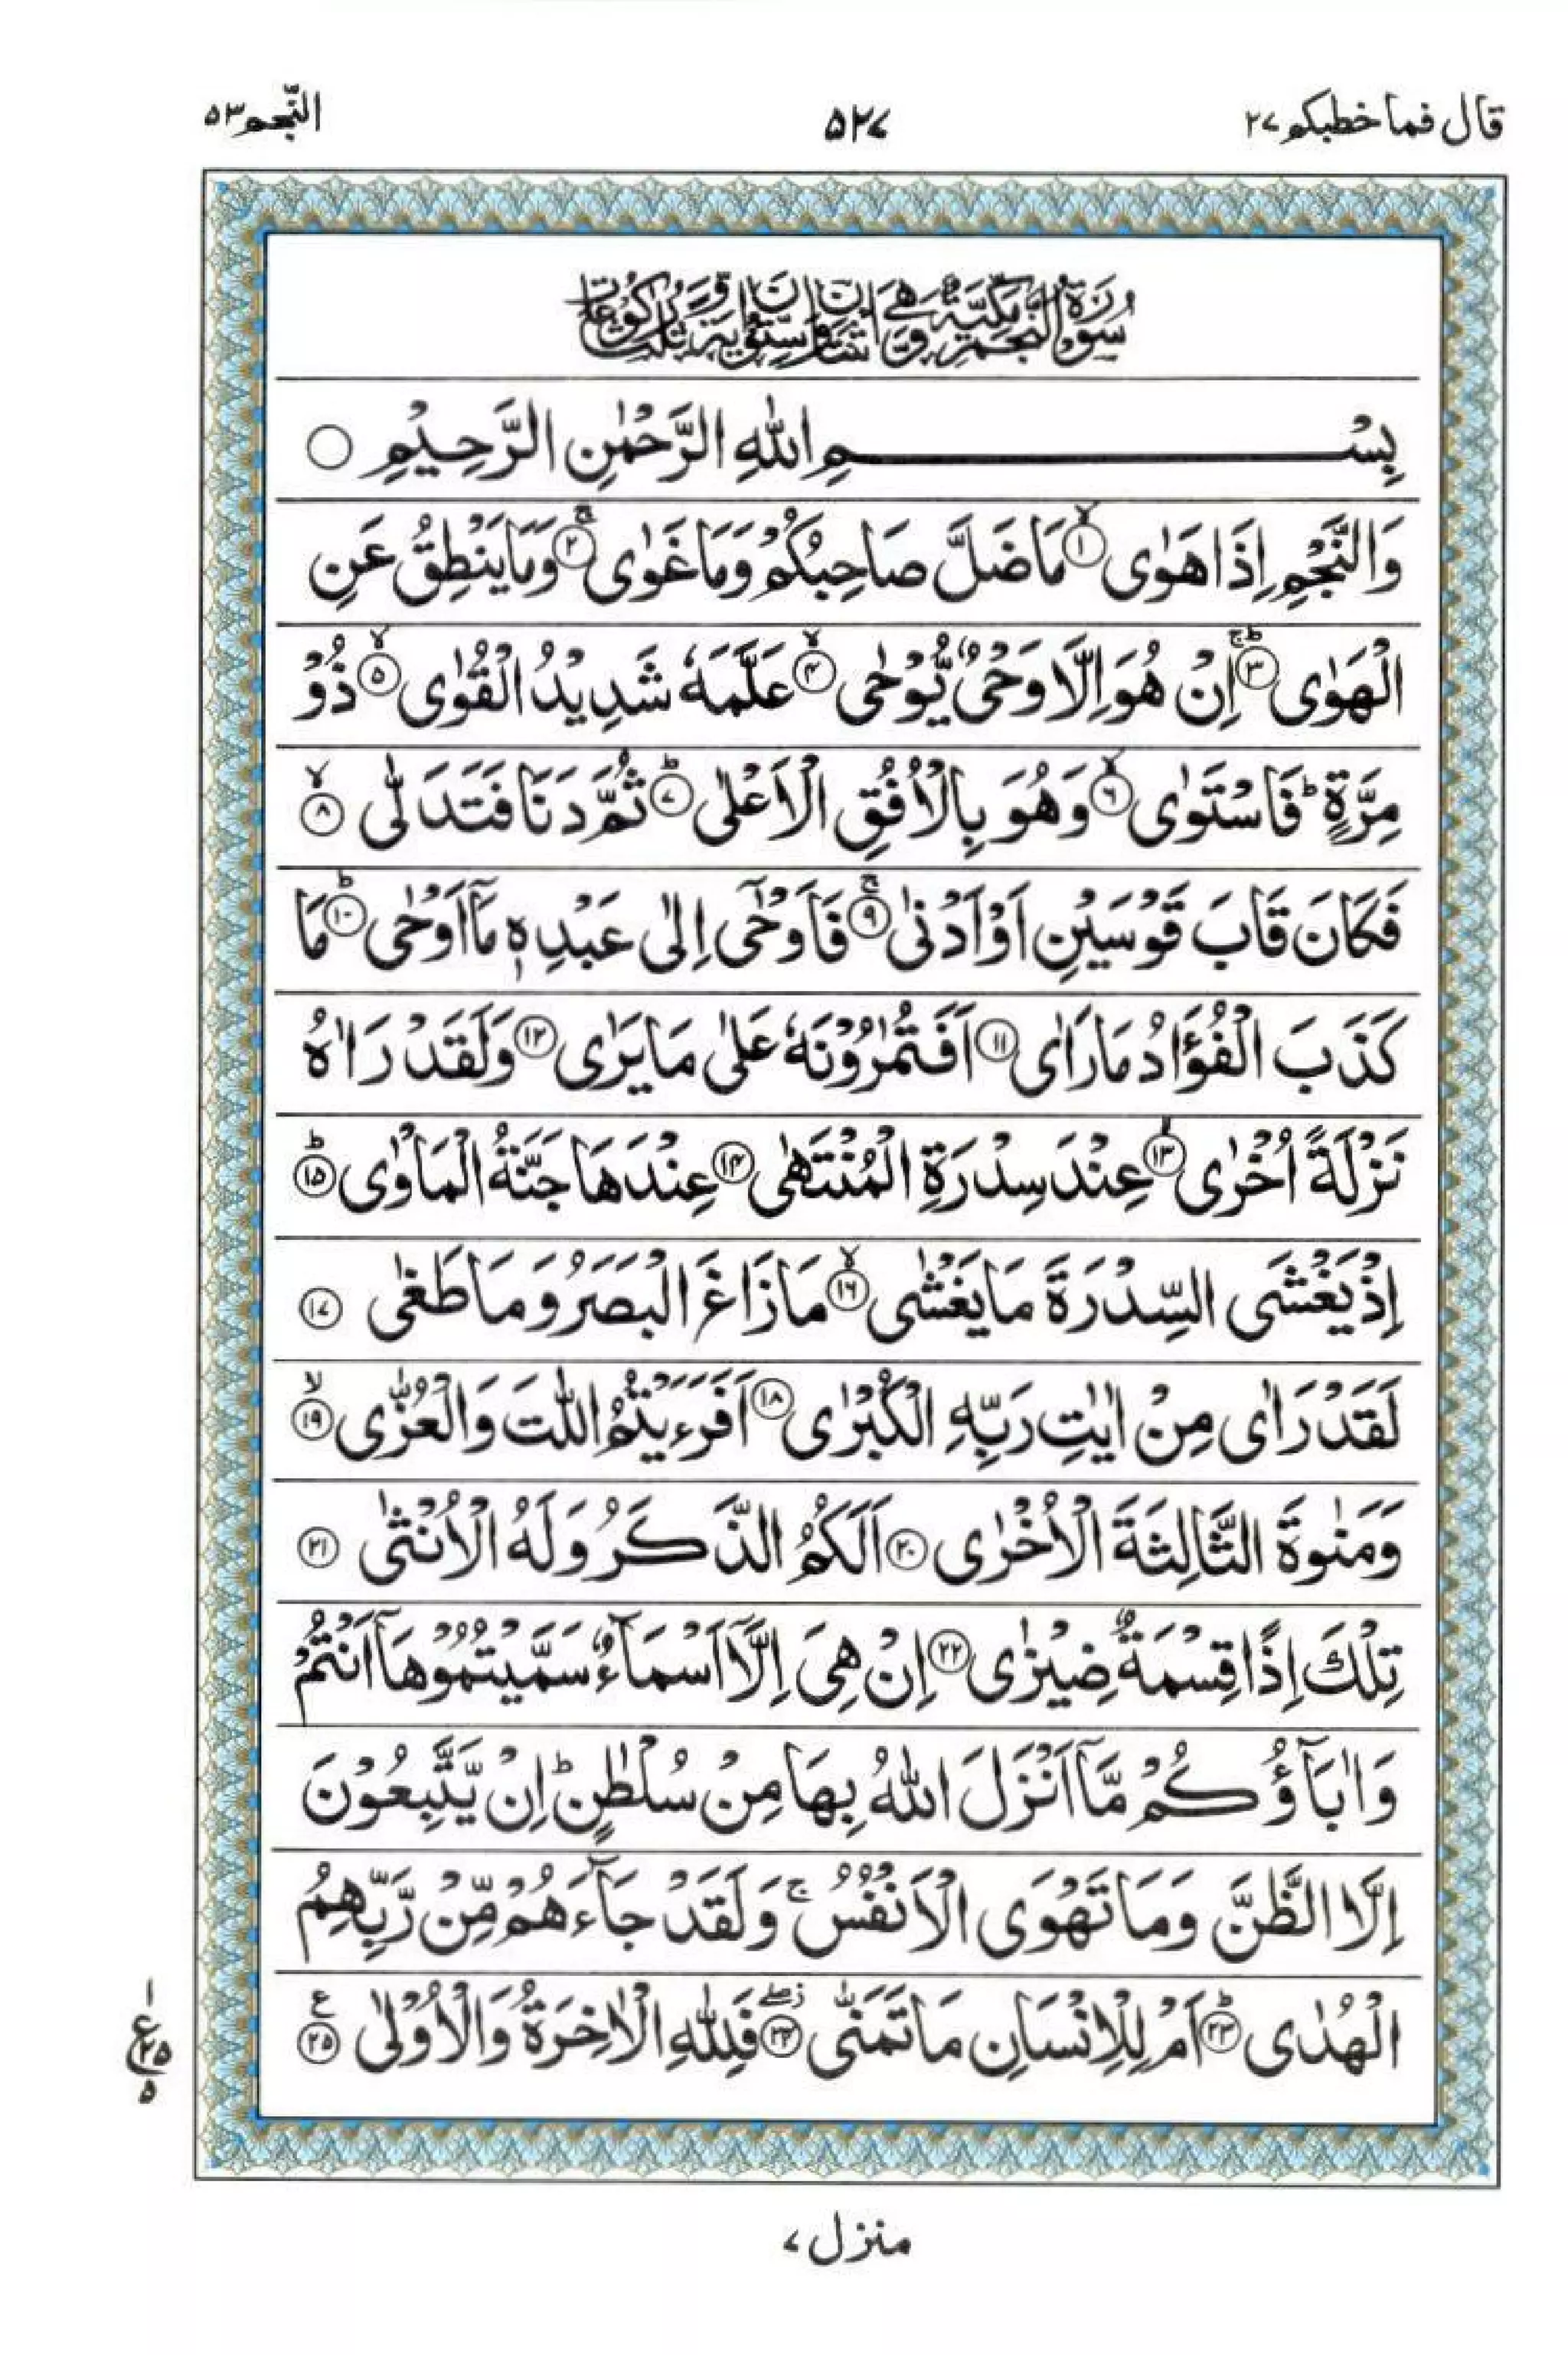 قال فماخطبكم ۲۷
۵۲۷
النّجم ۵۳
سُوْرَةُ النَّجْمِ مَكِّيَّةٌ وَّهِيَ اثْنَتَانِ وَسِتُّوْنَ اٰيَةً وَّثَلٰثُ رُكُوْعَاتٍ
بِسْمِ اللّٰهِ الرَّحْمٰنِ الرَّحِيْمِ ○
وَالنَّجْمِ اِذَا هَوٰى ۙ﴿۱﴾ مَا ضَلَّ صَاحِبُكُمْ وَمَا غَوٰى ۚ﴿۲﴾ وَمَا يَنْطِقُ عَنِ
الْهَوٰى ؕۚ﴿۳﴾ اِنْ هُوَ اِلَّا وَحْىٌ يُّوْحٰى ۙ﴿۴﴾ عَلَّمَهٗ شَدِيْدُ الْقُوٰى ۙ﴿۵﴾ ذُوْ
مِرَّةٍ ؕ فَاسْتَوٰى ۙ﴿۶﴾ وَهُوَ بِالْاُفُقِ الْاَعْلٰى ؕ﴿۷﴾ ثُمَّ دَنَا فَتَدَلّٰى ۙ﴿۸﴾
فَكَانَ قَابَ قَوْسَيْنِ اَوْ اَدْنٰى ۚ﴿۹﴾ فَاَوْحٰۤى اِلٰى عَبْدِهٖ مَاۤ اَوْحٰى ؕ﴿۱۰﴾ مَا
كَذَبَ الْفُؤَادُ مَا رَاٰى ﴿۱۱﴾ اَفَتُمٰرُوْنَهٗ عَلٰى مَا يَرٰى ﴿۱۲﴾ وَلَقَدْ رَاٰهُ
نَزْلَةً اُخْرٰى ۙ﴿۱۳﴾ عِنْدَ سِدْرَةِ الْمُنْتَهٰى ﴿۱۴﴾ عِنْدَهَا جَنَّةُ الْمَاْوٰى ؕ﴿۱۵﴾
اِذْ يَغْشَى السِّدْرَةَ مَا يَغْشٰى ۙ﴿۱۶﴾ مَا زَاغَ الْبَصَرُ وَمَا طَغٰى ﴿۱۷﴾
لَقَدْ رَاٰى مِنْ اٰيٰتِ رَبِّهِ الْكُبْرٰى ﴿۱۸﴾ اَفَرَءَيْتُمُ اللّٰتَ وَالْعُزّٰى ۙ﴿۱۹﴾
وَمَنٰوةَ الثَّالِثَةَ الْاُخْرٰى ﴿۲۰﴾ اَلَكُمُ الذَّكَرُ وَلَهُ الْاُنْثٰى ﴿۲۱﴾
تِلْكَ اِذًا قِسْمَةٌ ضِيْزٰى ﴿۲۲﴾ اِنْ هِىَ اِلَّاۤ اَسْمَآءٌ سَمَّيْتُمُوْهَاۤ اَنْتُمْ
وَاٰبَآؤُكُمْ مَّاۤ اَنْزَلَ اللّٰهُ بِهَا مِنْ سُلْطٰنٍ ؕ اِنْ يَّتَّبِعُوْنَ
اِلَّا الظَّنَّ وَمَا تَهْوَى الْاَنْفُسُ ۚ وَلَقَدْ جَآءَهُمْ مِّنْ رَّبِّهِمُ
الْهُدٰى ؕ﴿۲۳﴾ اَمْ لِلْاِنْسَانِ مَا تَمَنّٰى ۖ﴿۲۴﴾ فَلِلّٰهِ الْاٰخِرَةُ وَالْاُوْلٰى ع﴿۲۵﴾
۱
ع ۲۵
۵
منزل ۷